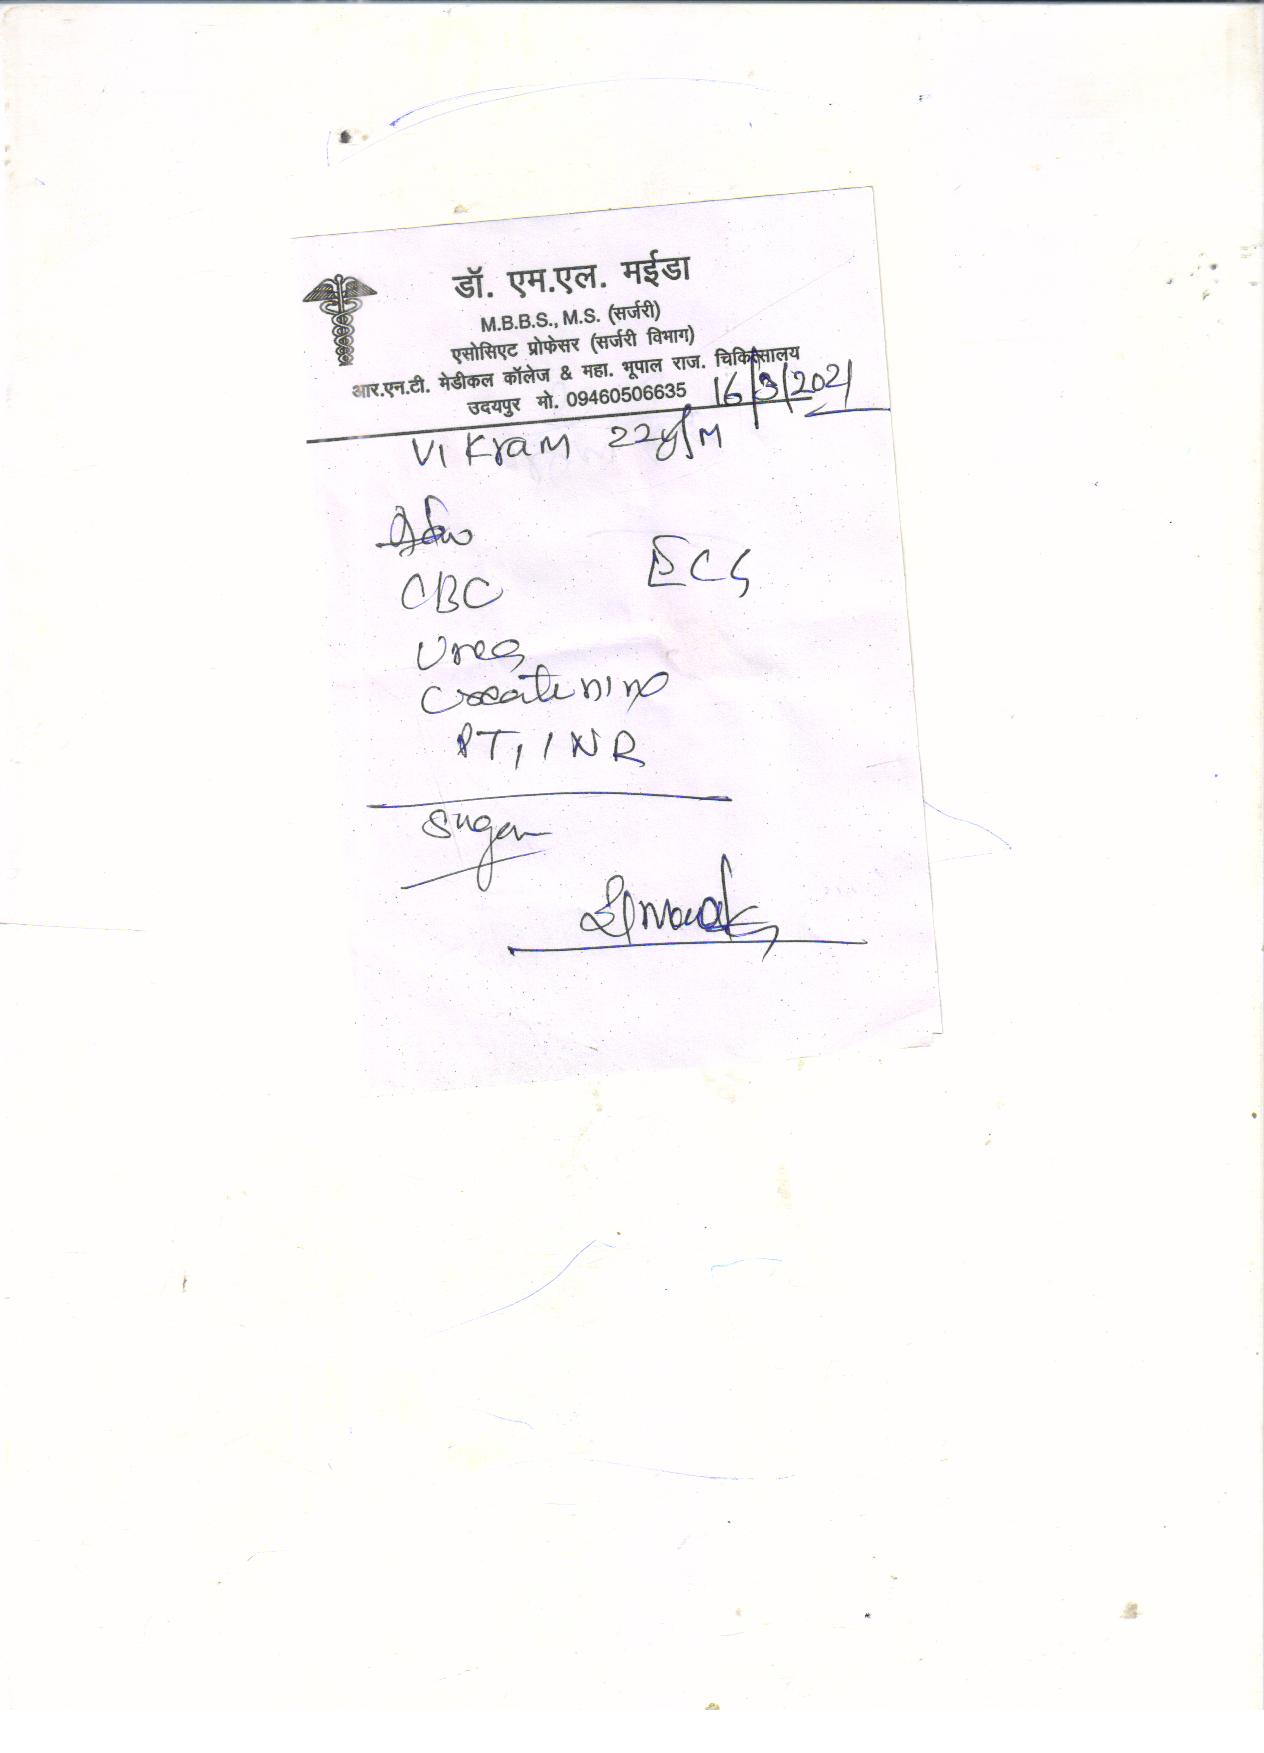 डॉ. एम.एल. मईडा
M.B.B.S., M.S. (सर्जरी)
एसोसिएट प्रोफेसर (सर्जरी विभाग)
आर.एन.टी. मेडीकल कॉलेज & महा. भूपाल राज. चिकित्सालय
उदयपुर मो. 09460506635 16/3/2021
Vikram 22y/M
CBC ECG
Urea
Createnine
PT, INR
Sugar